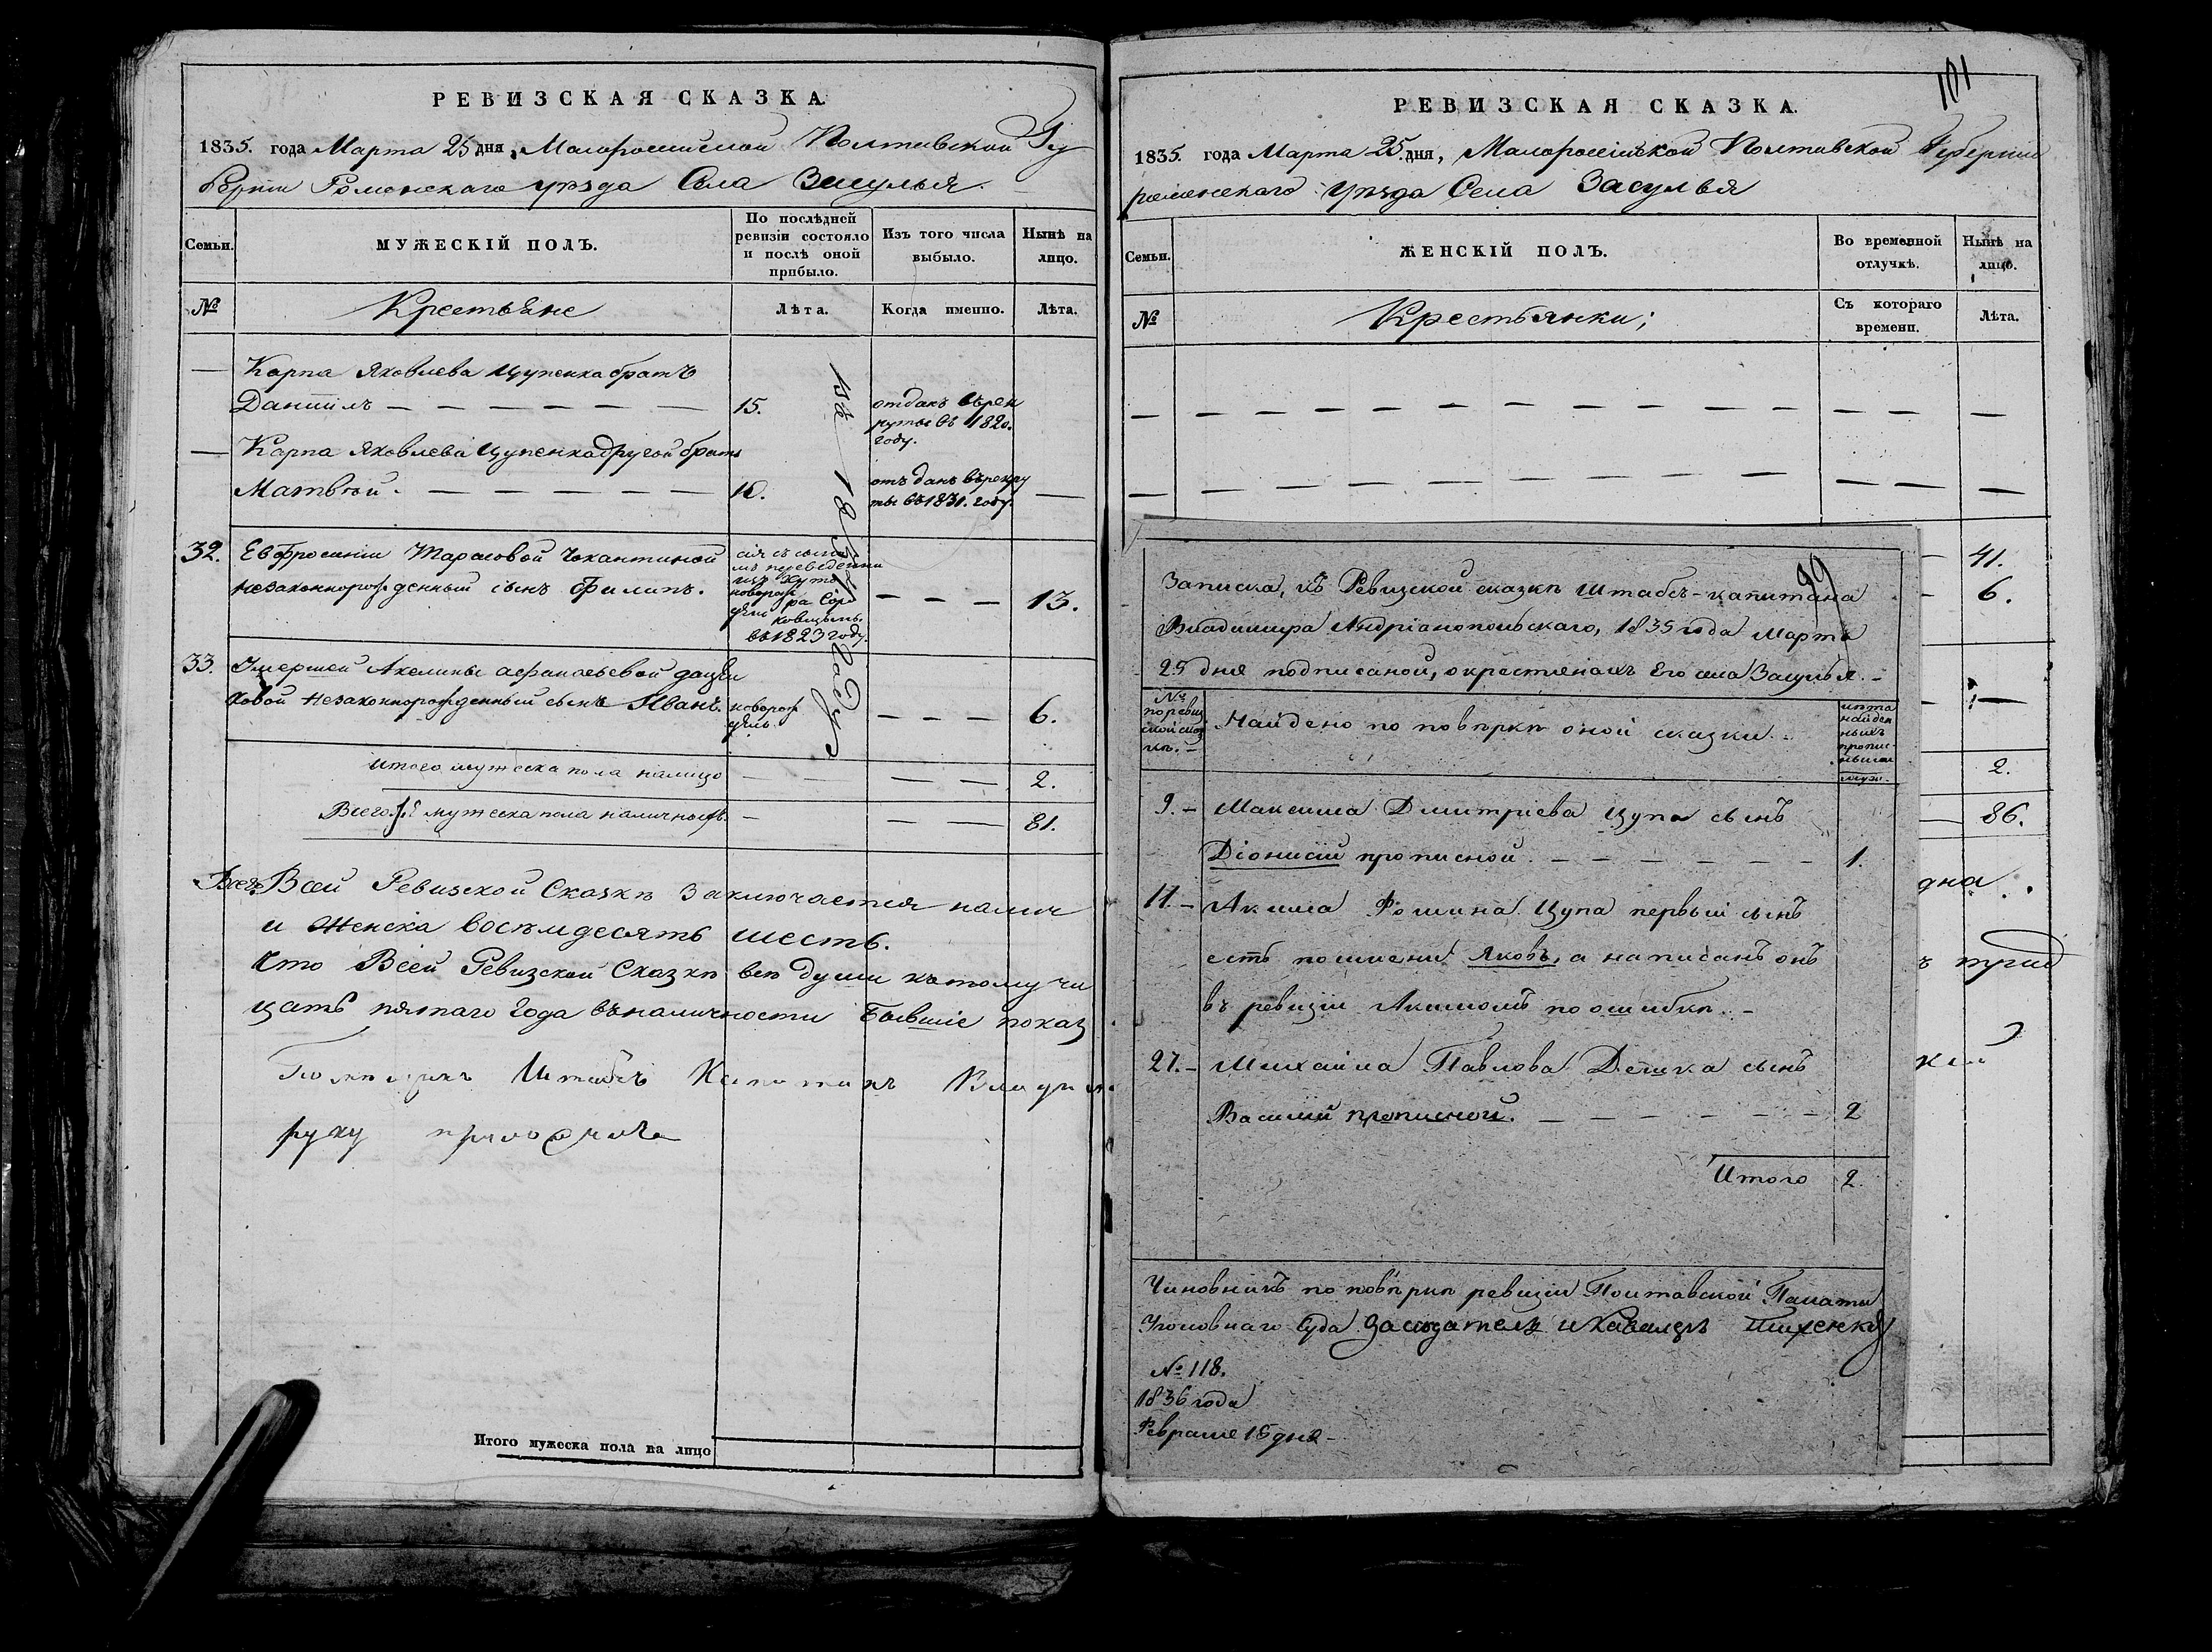 РЕВИЗСКАЯ СКАЗКА
1835. года Марта 25 дня, Малороссийской Полтавской Гу
берніи Роменскаго уѣзда Села Засулья.
Семьи.
МУЖЕСКІЙ ПОЛЪ.
По послѣдней
ревизіи состояло
и послѣ оной
прибыло.
Изъ того числа
выбыло.
Нынѣ на
лицо.
№
Крестьяне
Лѣта.
Когда именно.
Лѣта.
Карпа Яковлева Цупенка братъ
Даніилъ 15. отданъ въ рек
руты въ 1820.
году.
Карпа Яковлева Цупенка другой братъ
Матвѣй. 10. отъданъ въ рекру
ты въ 1831. году.
въ 1834 году
32. Евфросиніи Тарасовой
незаконнорожденный сынъ Филипъ. 13.
въ 1823 году.
33. Умершей Акелины Афанасьевой
незаконнорожденный сынъ Иванъ. новорож 6.
Итого мужеска пола налицо 2.
Всего мужеска пола наличныхъ 81.
Всей Ревизской Сказкѣ заключается налич
и Женска восемдесять шесть.
Что Всей Ревизской Сказкѣ всѣ души къ тому чи
цать пятаго года въ наличности бывшіе показ
Помѣщикъ Штабсъ Капитанъ Владим
руку приложилъ
Итого мужеска пола на лицо
101
РЕВИЗСКАЯ СКАЗКА.
1835. года Марта 25. дня, Малороссійской Полтавской Губерніи
роменскаго уѣзда Села Засулья
Семьи.
ЖЕНСКІЙ ПОЛЪ.
Во временной
отлучкѣ.
Нынѣ на
лицо.
№
Крестьянки;
Съ котораго
времени.
Лѣта.
41.
6.
2.
86.
дна
ъ трид
99
Записка, къ Ревизской сказкѣ Штабсъ-капитана
Владимира Андріанопольскаго, 1835 года Марта
25 дня подписаной, о крестьянахъ его села Засулья.
№
по ревиз
ской сказ
кѣ.
Найдено по повѣркѣ оной сказки.
лѣта
найден
ныхъ
пропис
ными
муж.
9. Максима Дмитріева Цупа сынъ
Діонисій прописной. 1.
11. Акима Фомина Цупа первый сынъ
есть по имени Яковъ, а написанъ онъ
въ ревизіи Акимомъ по ошибкѣ.
27. Михаила Павлова Дешка сынъ
Василій прописной. 2
Итого 2.
Чиновникъ по повѣркѣ ревизіи Полтавской Палаты
Уголовнаго Суда Засѣдатель и Кавалеръ
№ 118.
1836 года
Февраля 15 дня